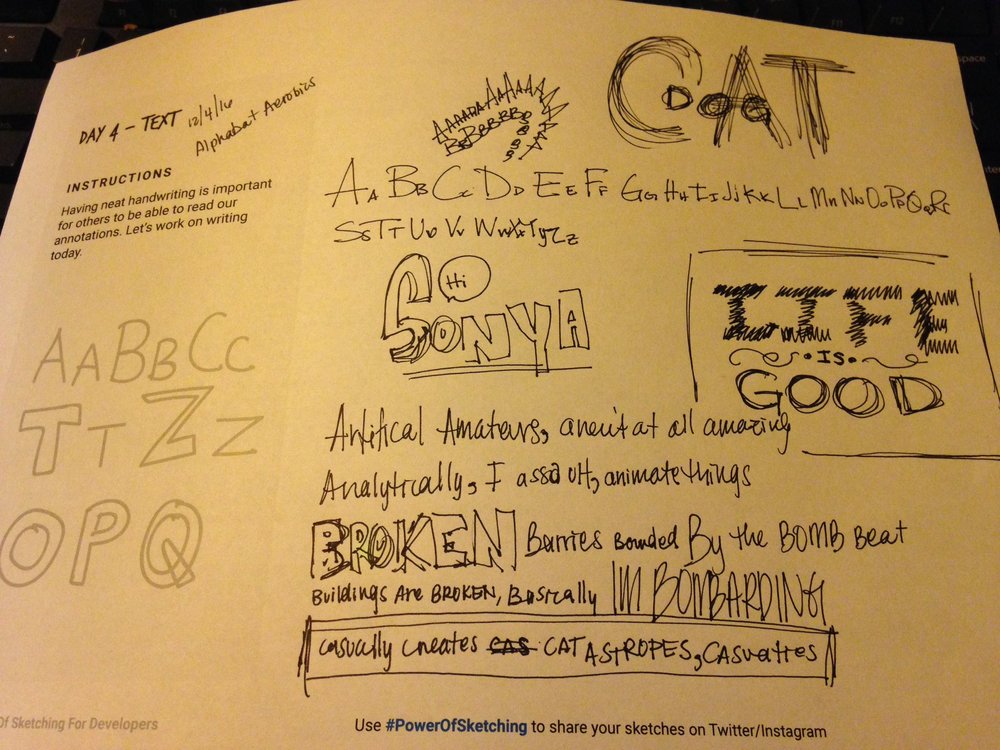 DAY 4 - TEXT 12/4/16
Alphabat Aerobics
INSTRUCTIONS
Having neat handwriting is important
for others to be able to read our
annotations. Let's work on writing
today.
AABBCC
TTZZ
OPQ
AAAAAAAAAAA
BBBBBBBB
CAT
AABBCCDDEEFFGGHHIIJJKKLLMMNNOOPPQQRR
SSTTUUVVWWXXYYZZ
Hi
SONYA
LIFE
IS
GOOD
Artifical Amateurs, aren't at all amazing
Analytically, I assault, animate things
BROKEN Barries Bounded By the BOMB Beat
Buildings Are BROKEN, Basically IM BOMBARDING
casually creates CAS CATASTROPES, CASualties
Of Sketching For Developers
Use #PowerOfSketching to share your sketches on Twitter/Instagram